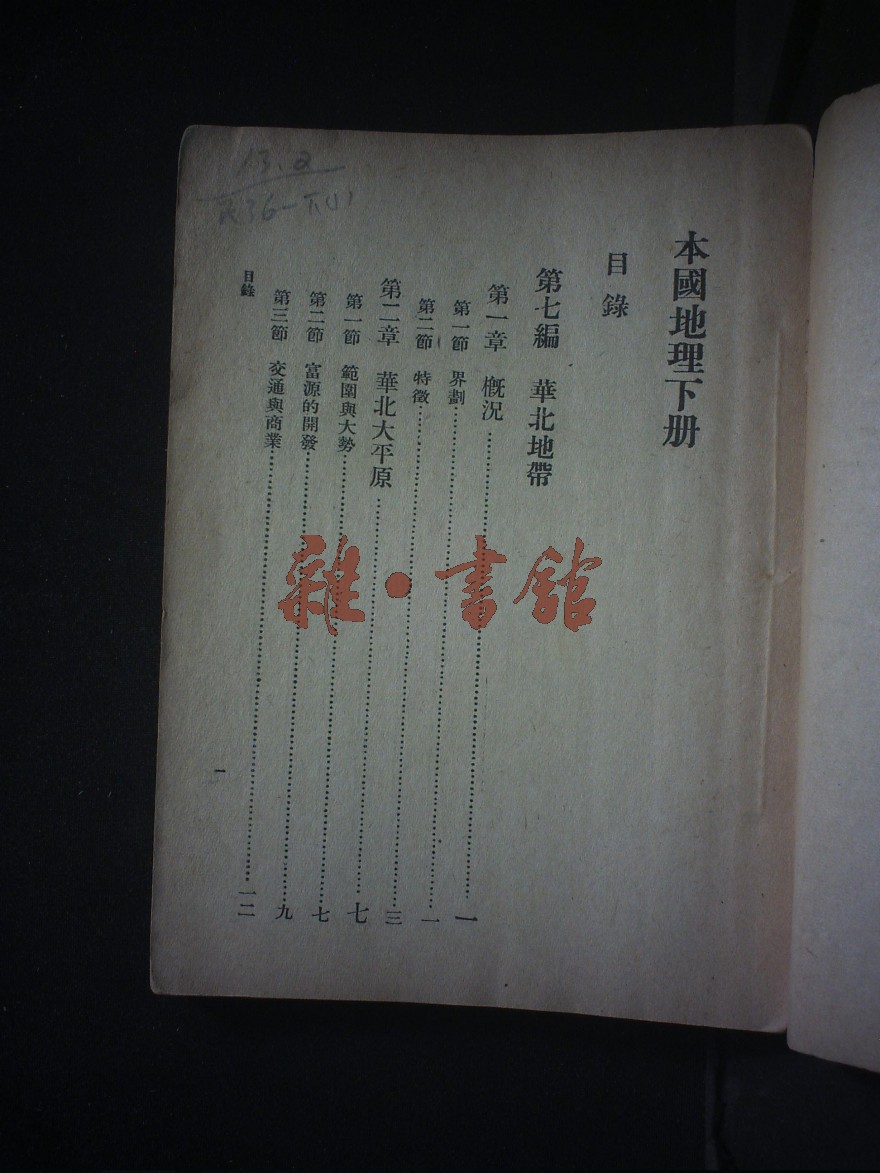 本國地理下册
目錄
第七編 華北地帶
第一章 概況……一
第一節 界劃……一
第二節 特徵……三
第二章 華北大平原……七
第一節 範圍與大勢……七
第二節 富源的開發……九
第三節 交通與商業……一二
目錄
一
雜·書館
13.2